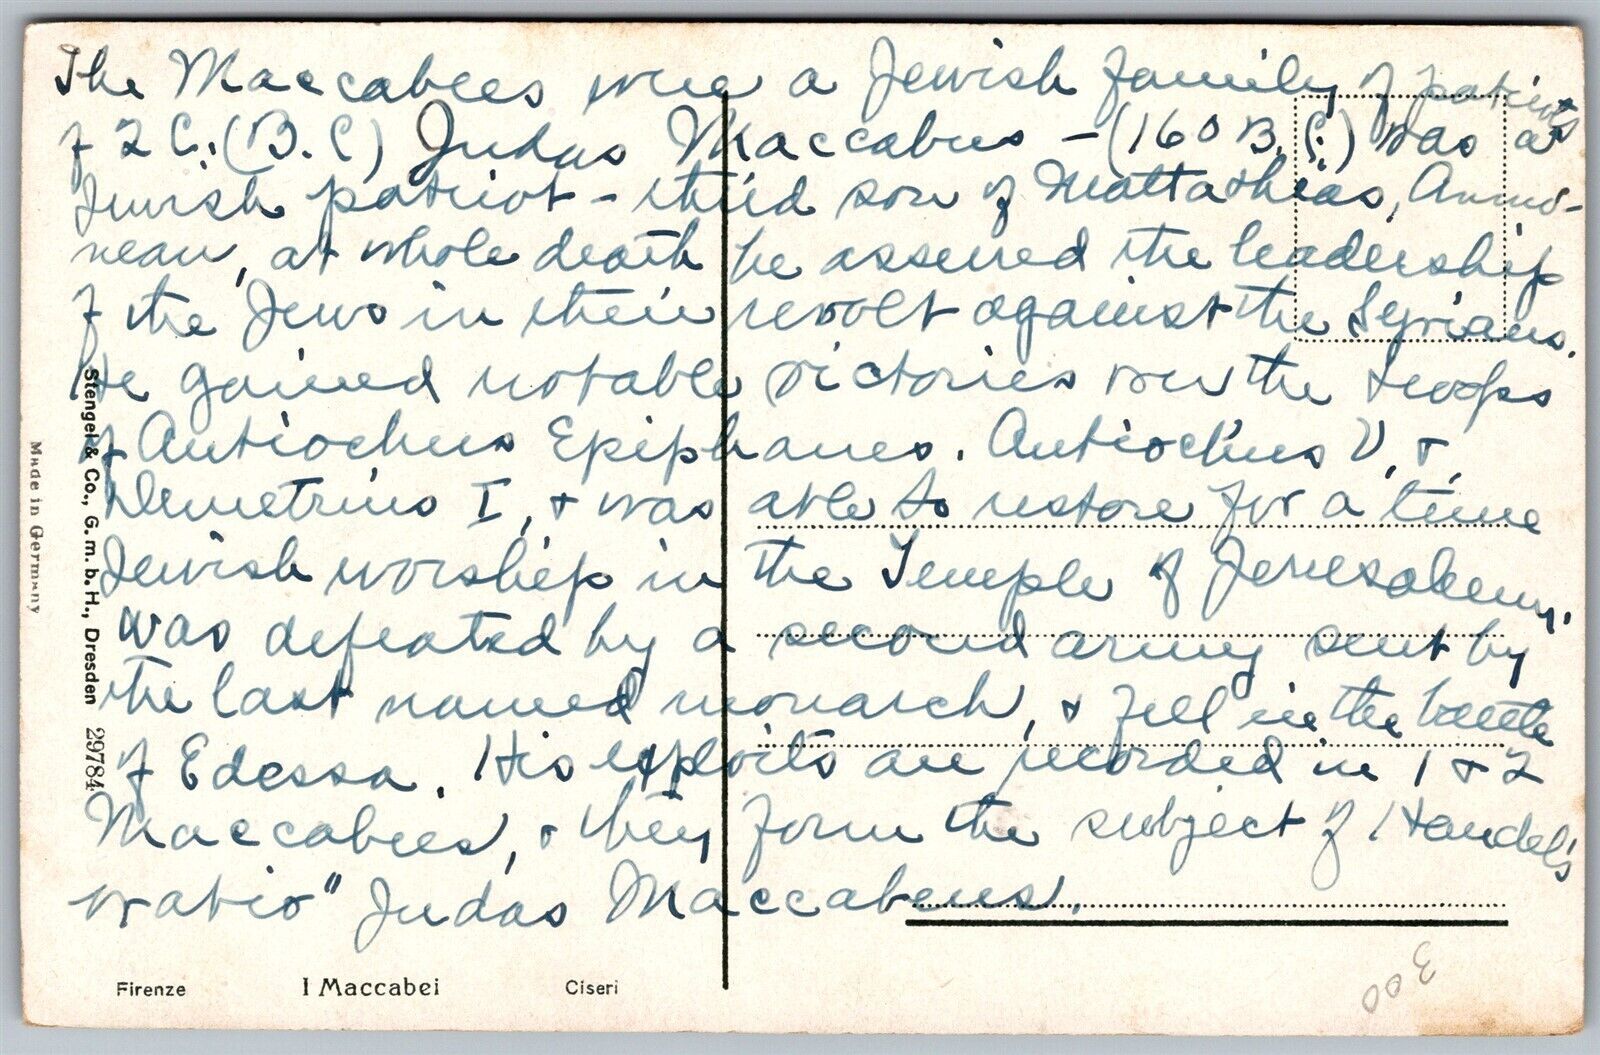 The Maccabees were a Jewish family of patriots
of 2 C. (B.C) Judas Maccabus - (160 B.C.) was a
Jewish patriot - third son of Mattathias, Asmo-
nean, at whole death he assened the leadership
of the Jews in their revolt against the Syrians.
He gained notable victories over the troops
of Antiochus Epiphanes. Antiochus V, &
Demetrius I, & was able to restore for a time
Jewish worship in the Temple of Jerusalem,
was defeated by a second army sent by
the last named monarch, & fell in the battle
of Edessa. His exploits are recorded in 1 & 2
Maccabees, & they form the subject of Handel's
oratio" Judas Maccabeus.
Firenze I Maccabei Ciseri
Stengel & Co., G.m.b.H., Dresden 29784
Made in Germany
300